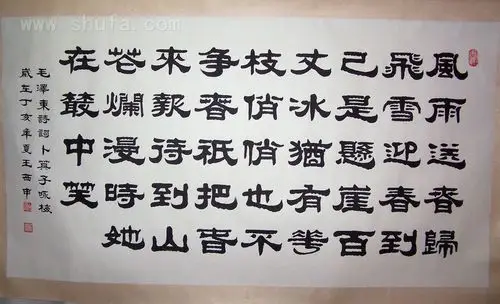 www.shufa.com
風雨送春歸
飛雪迎春到
已是懸崖百
丈冰猶有花
枝俏俏也不
爭春衹把春
來報待到山
花爛漫時她
在叢中笑
毛澤東詩詞卜算子咏梅
歲在丁亥年夏王西申